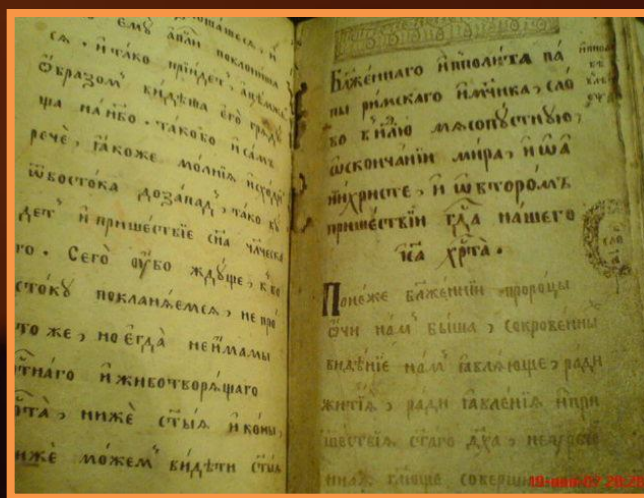 емъ̀ а҆пл҃и поклони́ша
сѧ. и҆ та́ко прїи́детъ, а҆́може
о҆́бразомъ ви́дѣша є҆го̀ грѧдꙋ́
ща на нб҃о. тако́во и҆ са́мъ
речѐ, ꙗ҆́коже мо́лнїѧ и҆схо́ди
ѿ восто́ка до за́падъ, та́ко бꙋ́
детъ и҆ прише́ствїе сн҃а чл҃ческа
го. Сегѡ̀ ᲂу҆́бо ждꙋ́ще, к̾ во
сто́кꙋ покланѧ́емсѧ, не про́
то же, но є҆гда̀ не и҆́мамы
чⷭ҇тна́го и҆ животворѧ́щаго
крⷭ҇та̀, нижѐ ст҃ы́ѧ и҆ко́ны,
нижѐ мо́жемъ ви́дѣти ст҃ы́ѧ
Бл҃же́ннаго и҆ппо́лита па́
пы ри́мскаго и҆ мч҃ника, сло́
во в̾ не́длю мѧсопꙋ́стнꙋю,
ѡ҆ сконча́нїи ми́ра, и҆ ѡ҆ а҆
нти́христе, и҆ ѡ҆ второ́мъ
прише́ствїи гдⷭ҇а на́шего
і҆с҃а хрⷭ҇та̀.
Поне́же бл҃же́ннїи проро́цы
ѻ҆́чи на́мъ бы́ша, сокрове́нны
ви́дѣнїе на́мъ ꙗ҆влѧ́юще, ра́ди
житїѧ̀, ра́ди ꙗ҆вле́нїѧ и҆ при
ше́ствїѧ ст҃а́го дх҃а,
соверш